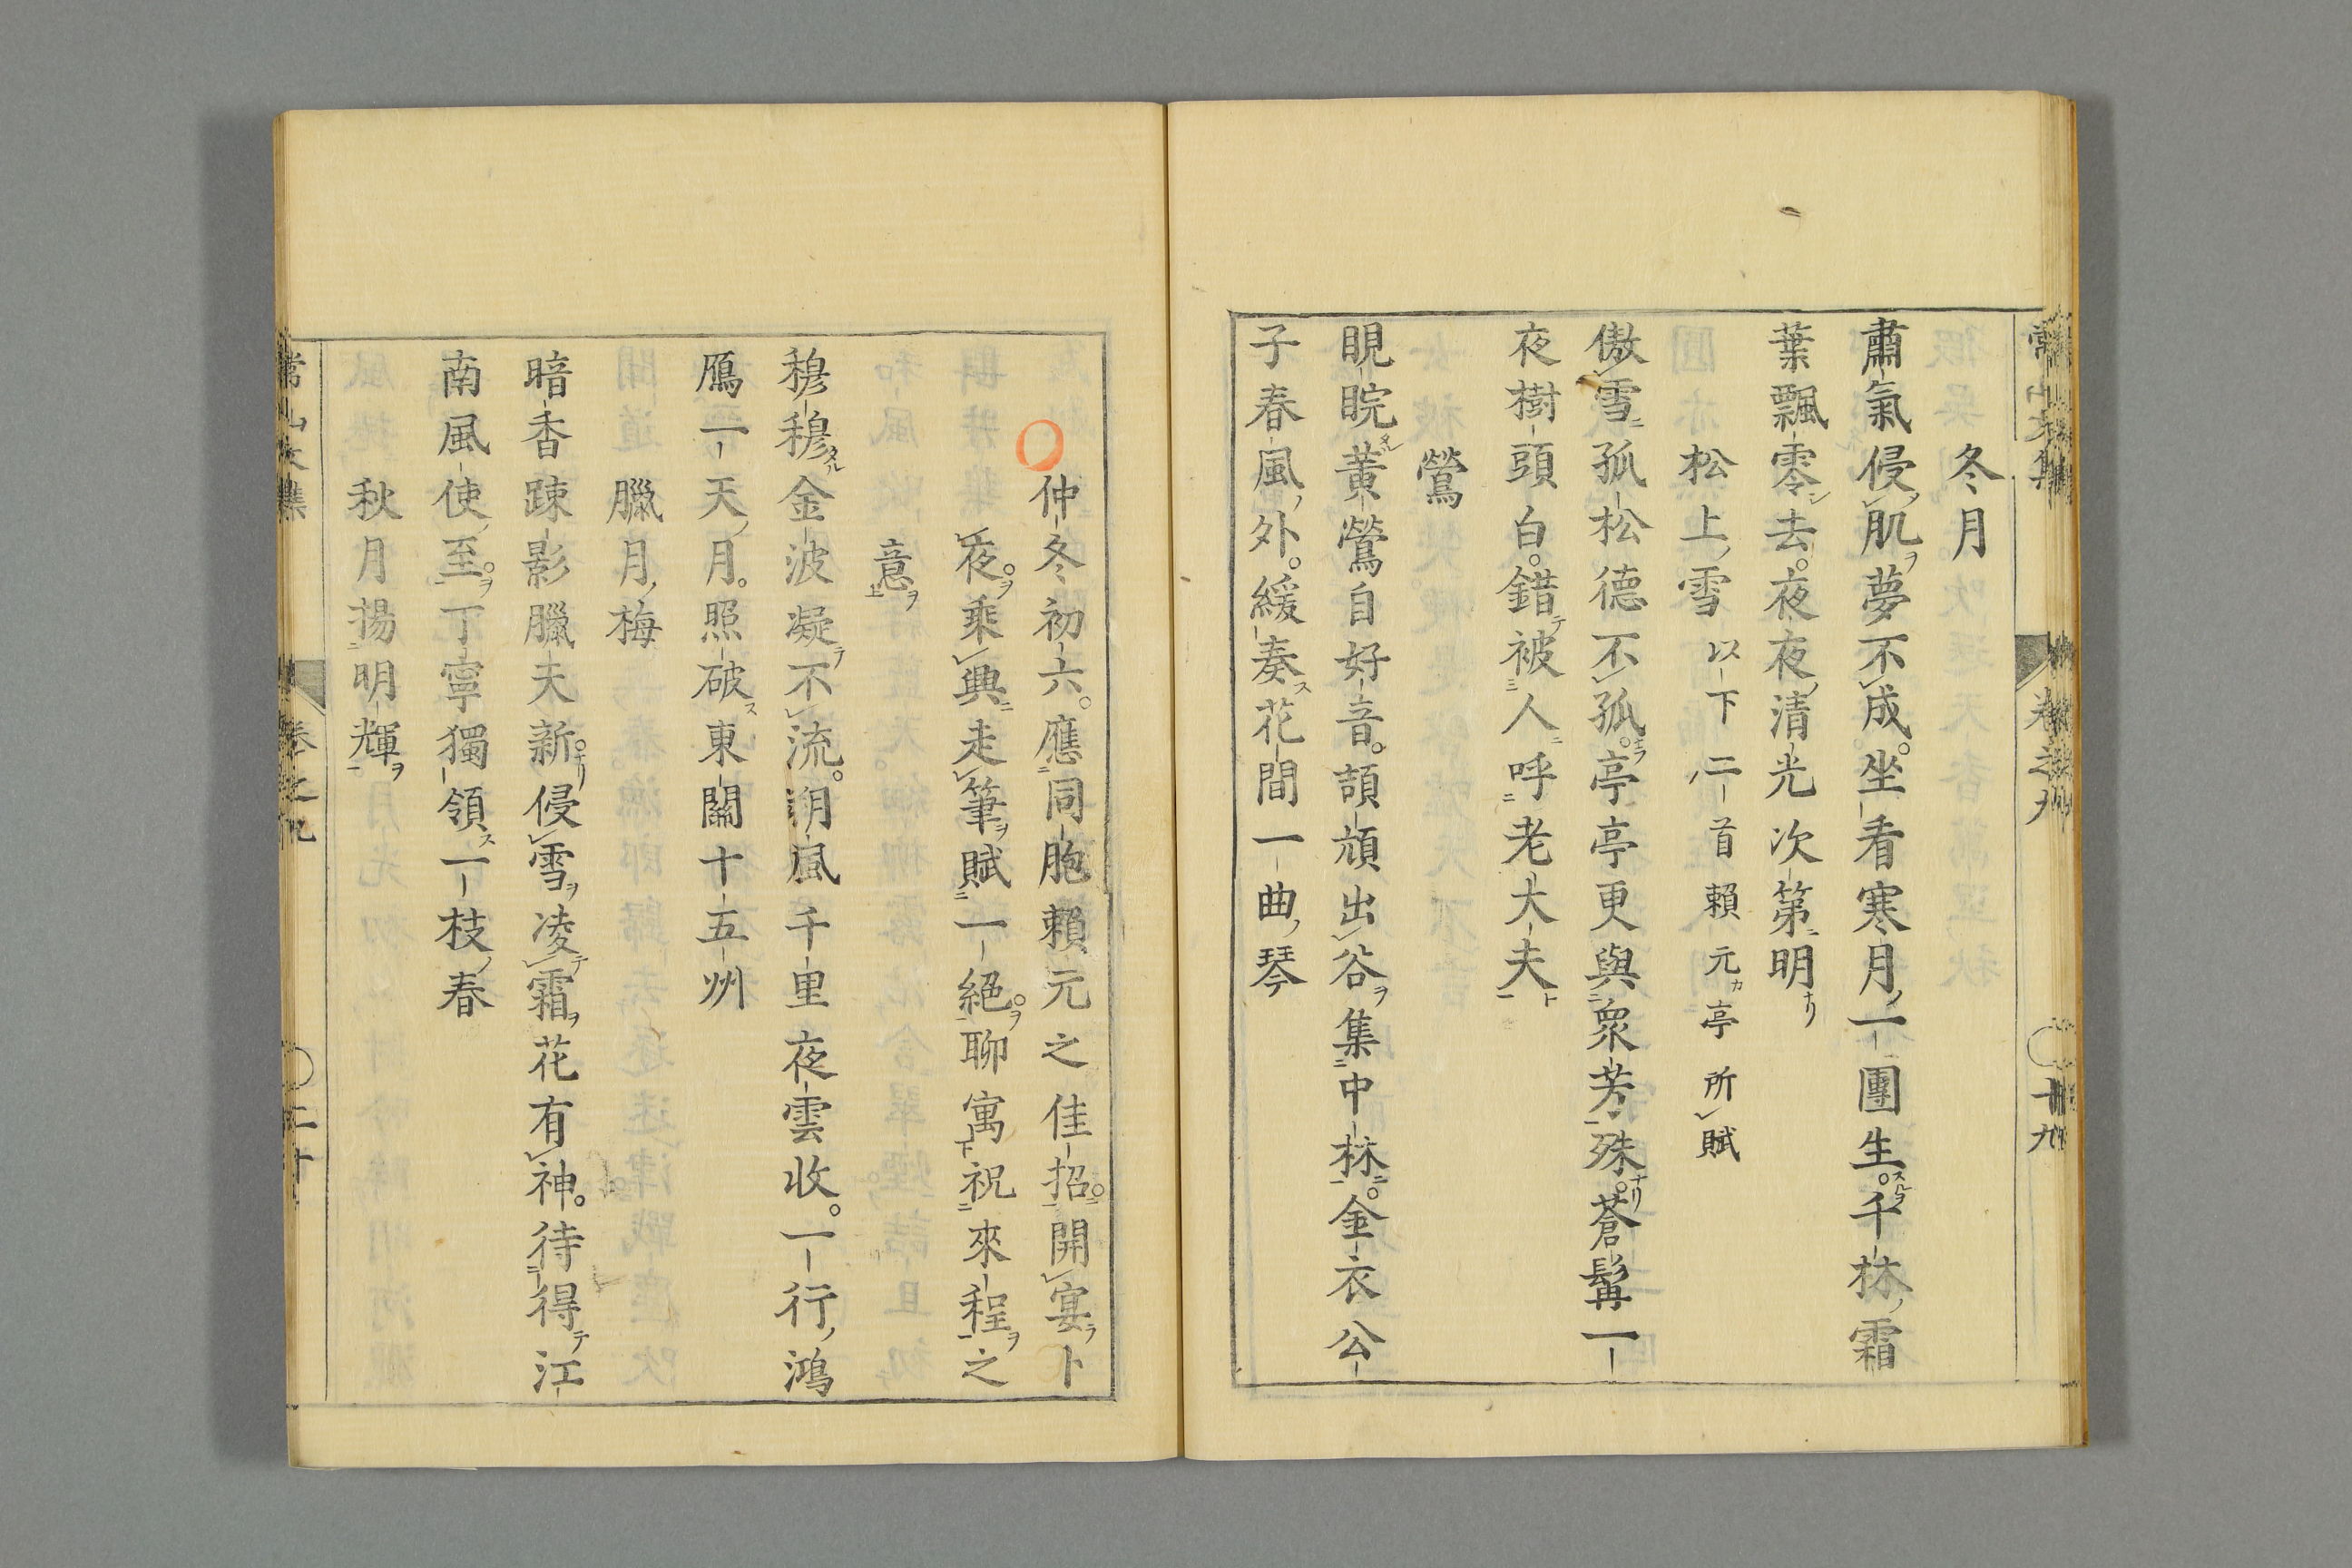 冬月
肅氣侵肌夢不成。坐看寒月一團生。千林霜
葉飄零去。夜夜清光次第明
松上雪 以下二首賴元亭所賦
傲雪孤松德不孤。亭亭更與衆芳殊。蒼髯一
夜樹頭白。錯被人呼老大夫
鶯
睍睆黃鶯自好音。頡頏出谷集中林。金衣公
子春風外。緩奏花間一曲琴
常山文集 卷之九 十九
仲冬初六。應同胞賴元之佳招。開宴卜
夜。乘興走筆賦一絕。聊寓祝來程之
意
穆穆金波凝不流。朔風千里夜雲收。一行鴻
鴈一天月。照破東關十五州
臘月梅
暗香踈影臘天新。侵雪凌霜花有神。待得江
南風使至。丁寧獨領一枝春
秋月揚明輝
常山文集 卷之九 二十